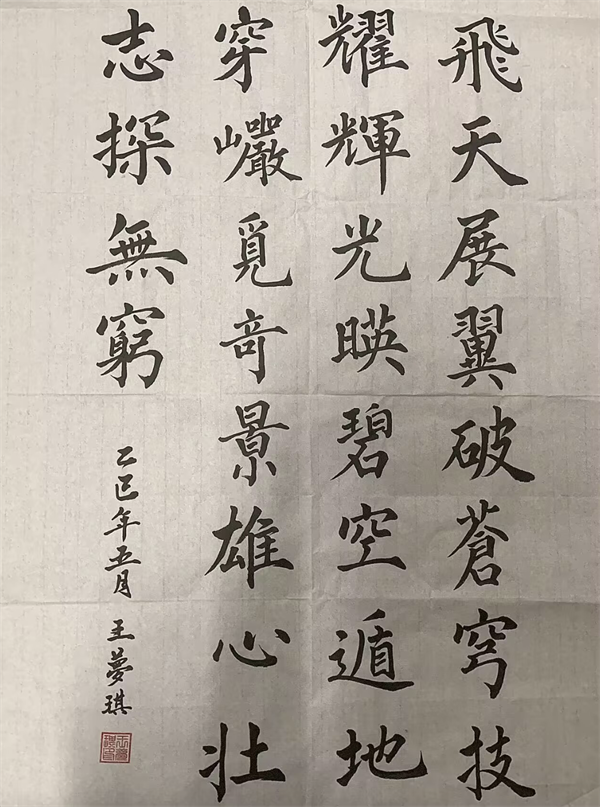 飛天展翼破蒼穹技
耀輝光暎碧空遁地
穿巗覓奇景雄心壯
志探無窮
乙巳年五月 王夢琪